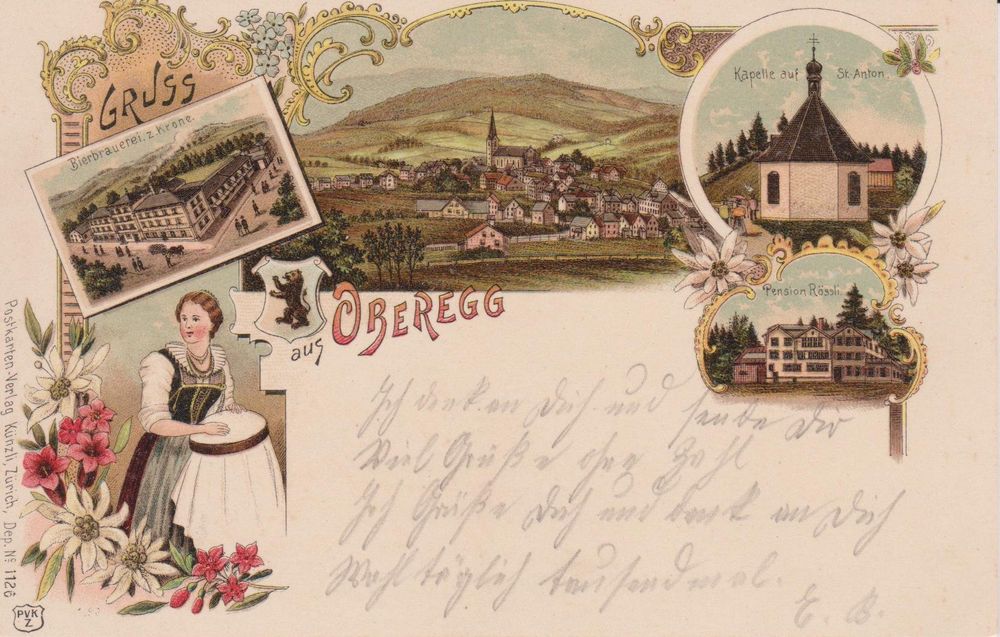 GRUSS
Bierbrauerei z. Krone.
Kapelle auf St. Anton.
aus
OBEREGG
Pension Rössli.
Ich denk an Dich und sende Dir
Viel Grüße ohn Zahl
Ich Grüße Dich und denk an Dich
Wohl täglich tausendmal.
E. B.
Postkarten-Verlag Künzli, Zürich, Dep. Nº 1126
PVK
Z